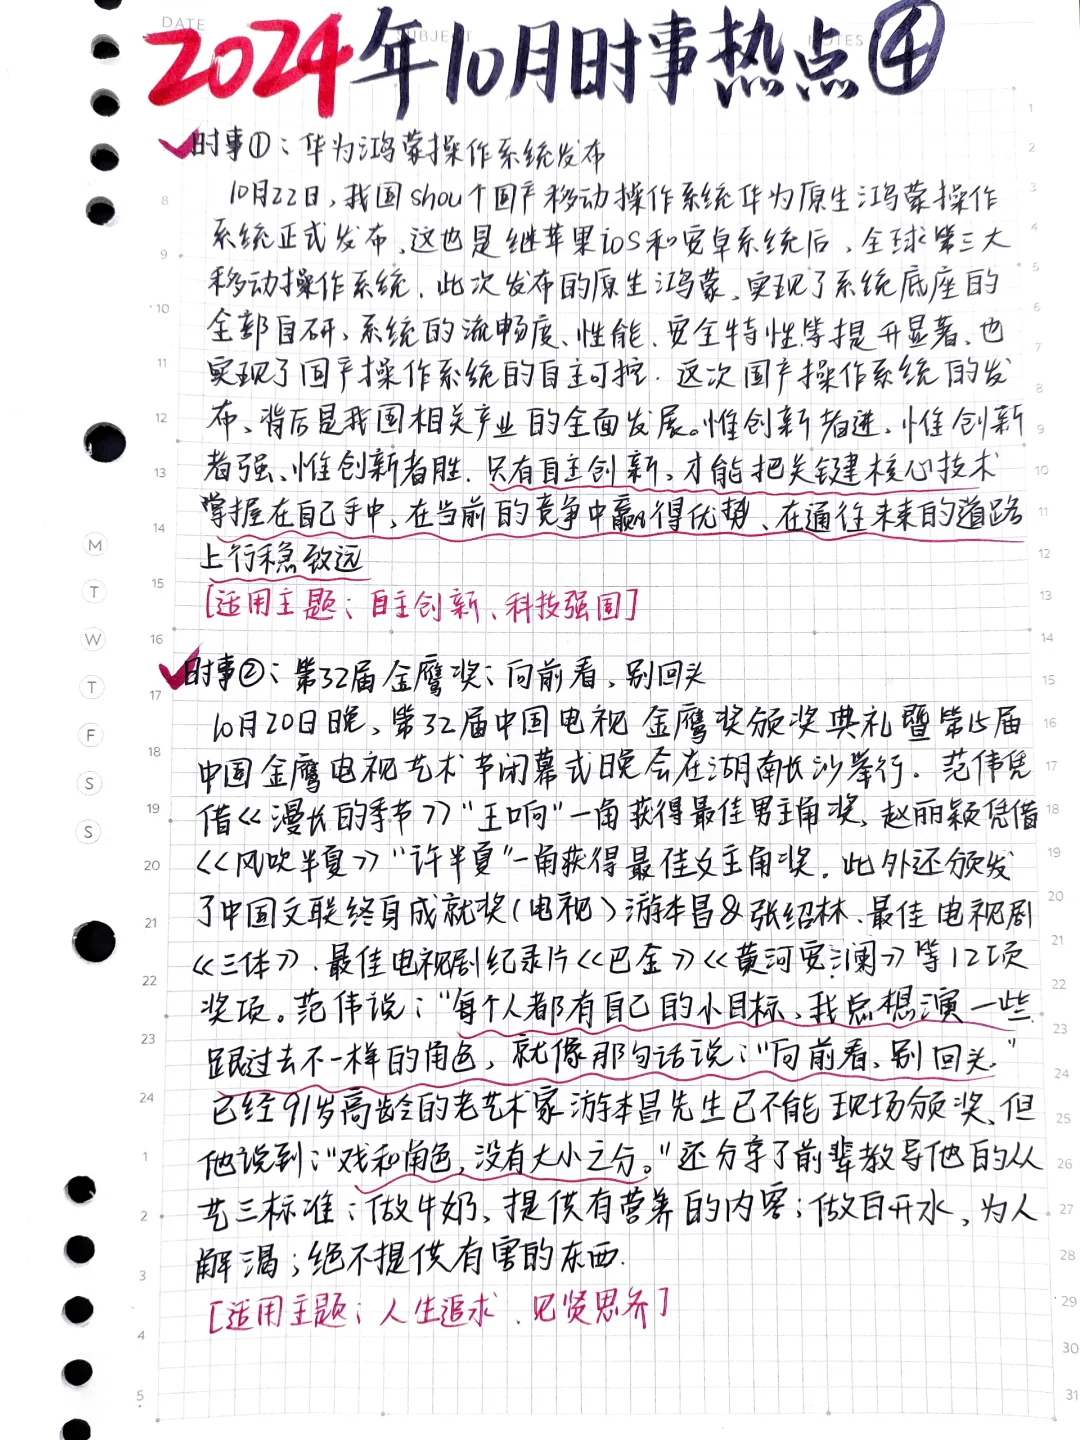 DATE
SUBJECT
NOTES
2024年10月时事热点④
时事①：华为鸿蒙操作系统发布
10月22日，我国shou个国产移动操作系统华为原生鸿蒙操作
系统正式发布、这也是继苹果iOS和安卓系统后、全球第三大
移动操作系统．此次发布的原生鸿蒙、实现了系统底座的
全部自研、系统的流畅度、性能、安全特性等提升显著、也
实现了国产操作系统的自主可控．这次国产操作系统的发
布、背后是我国相关产业的全面发展。惟创新者进、惟创新
者强、惟创新者胜．只有自主创新、才能把关键核心技术
掌握在自己手中、在当前的竞争中赢得优势、在通往未来的道路
上行稳致远
[适用主题：自主创新、科技强国]
时事②：第32届金鹰奖：向前看，别回头
10月20日晚、第32届中国电视金鹰奖颁奖典礼暨第15届
中国金鹰电视艺术节闭幕式晚会在湖南长沙举行．范伟凭
借《漫长的季节》"王响"一角获得最佳男主角奖、赵丽颖凭借
《风吹半夏》"许半夏"一角获得最佳女主角奖．此外还颁发
了中国文联终身成就奖（电视）游本昌&张绍林、最佳电视剧
《三体》、最佳电视剧纪录片《巴金》《黄河安澜》等12项
奖项。范伟说："每个人都有自己的小目标、我总想演一些
跟过去不一样的角色，就像那句话说："向前看，别回头."
已经91岁高龄的老艺术家游本昌先生已不能现场颁奖、但
他说到："戏和角色，没有大小之分。"还分享了前辈教导他的从
艺三标准：做牛奶、提供有营养的内容；做白开水、为人
解渴；绝不提供有害的东西．
[适用主题：人生追求、见贤思齐]
M
T
W
T
F
S
S
8
9
10
11
12
13
14
15
16
17
18
19
20
21
22
23
24
1
2
3
4
5
1
2
3
4
5
6
7
8
9
10
11
12
13
14
15
16
17
18
19
20
21
22
23
24
25
26
27
28
29
30
31